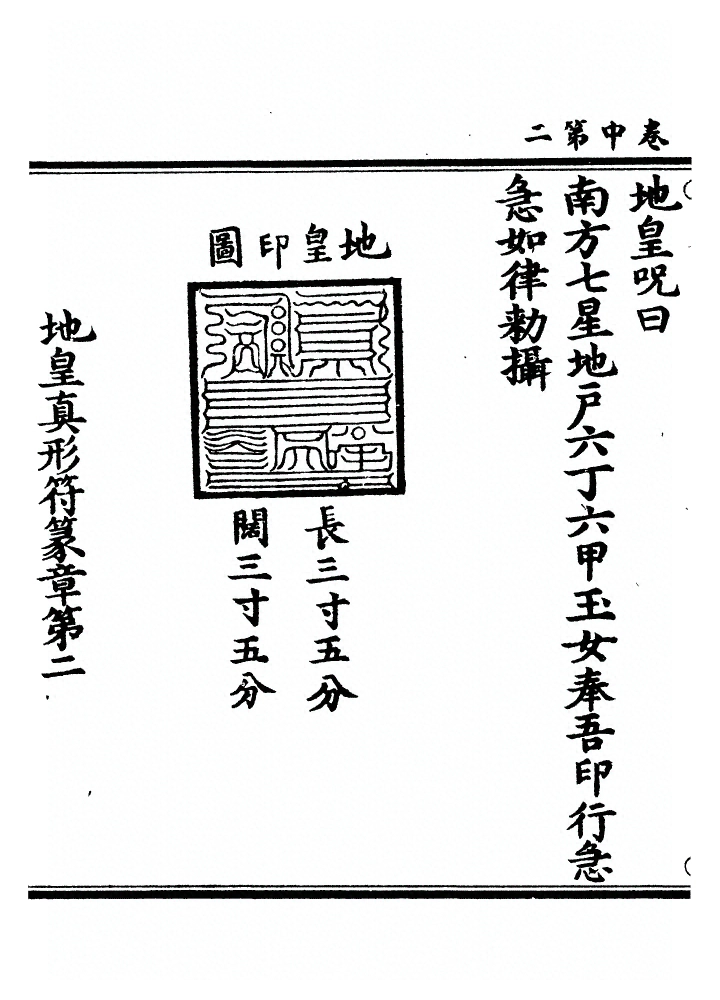 卷中第二
地皇呪曰
南方七星地戶六丁六甲玉女奉吾印行急
急如律勅攝
地皇印圖
長三寸五分
闊三寸五分
地皇真形符篆章第二